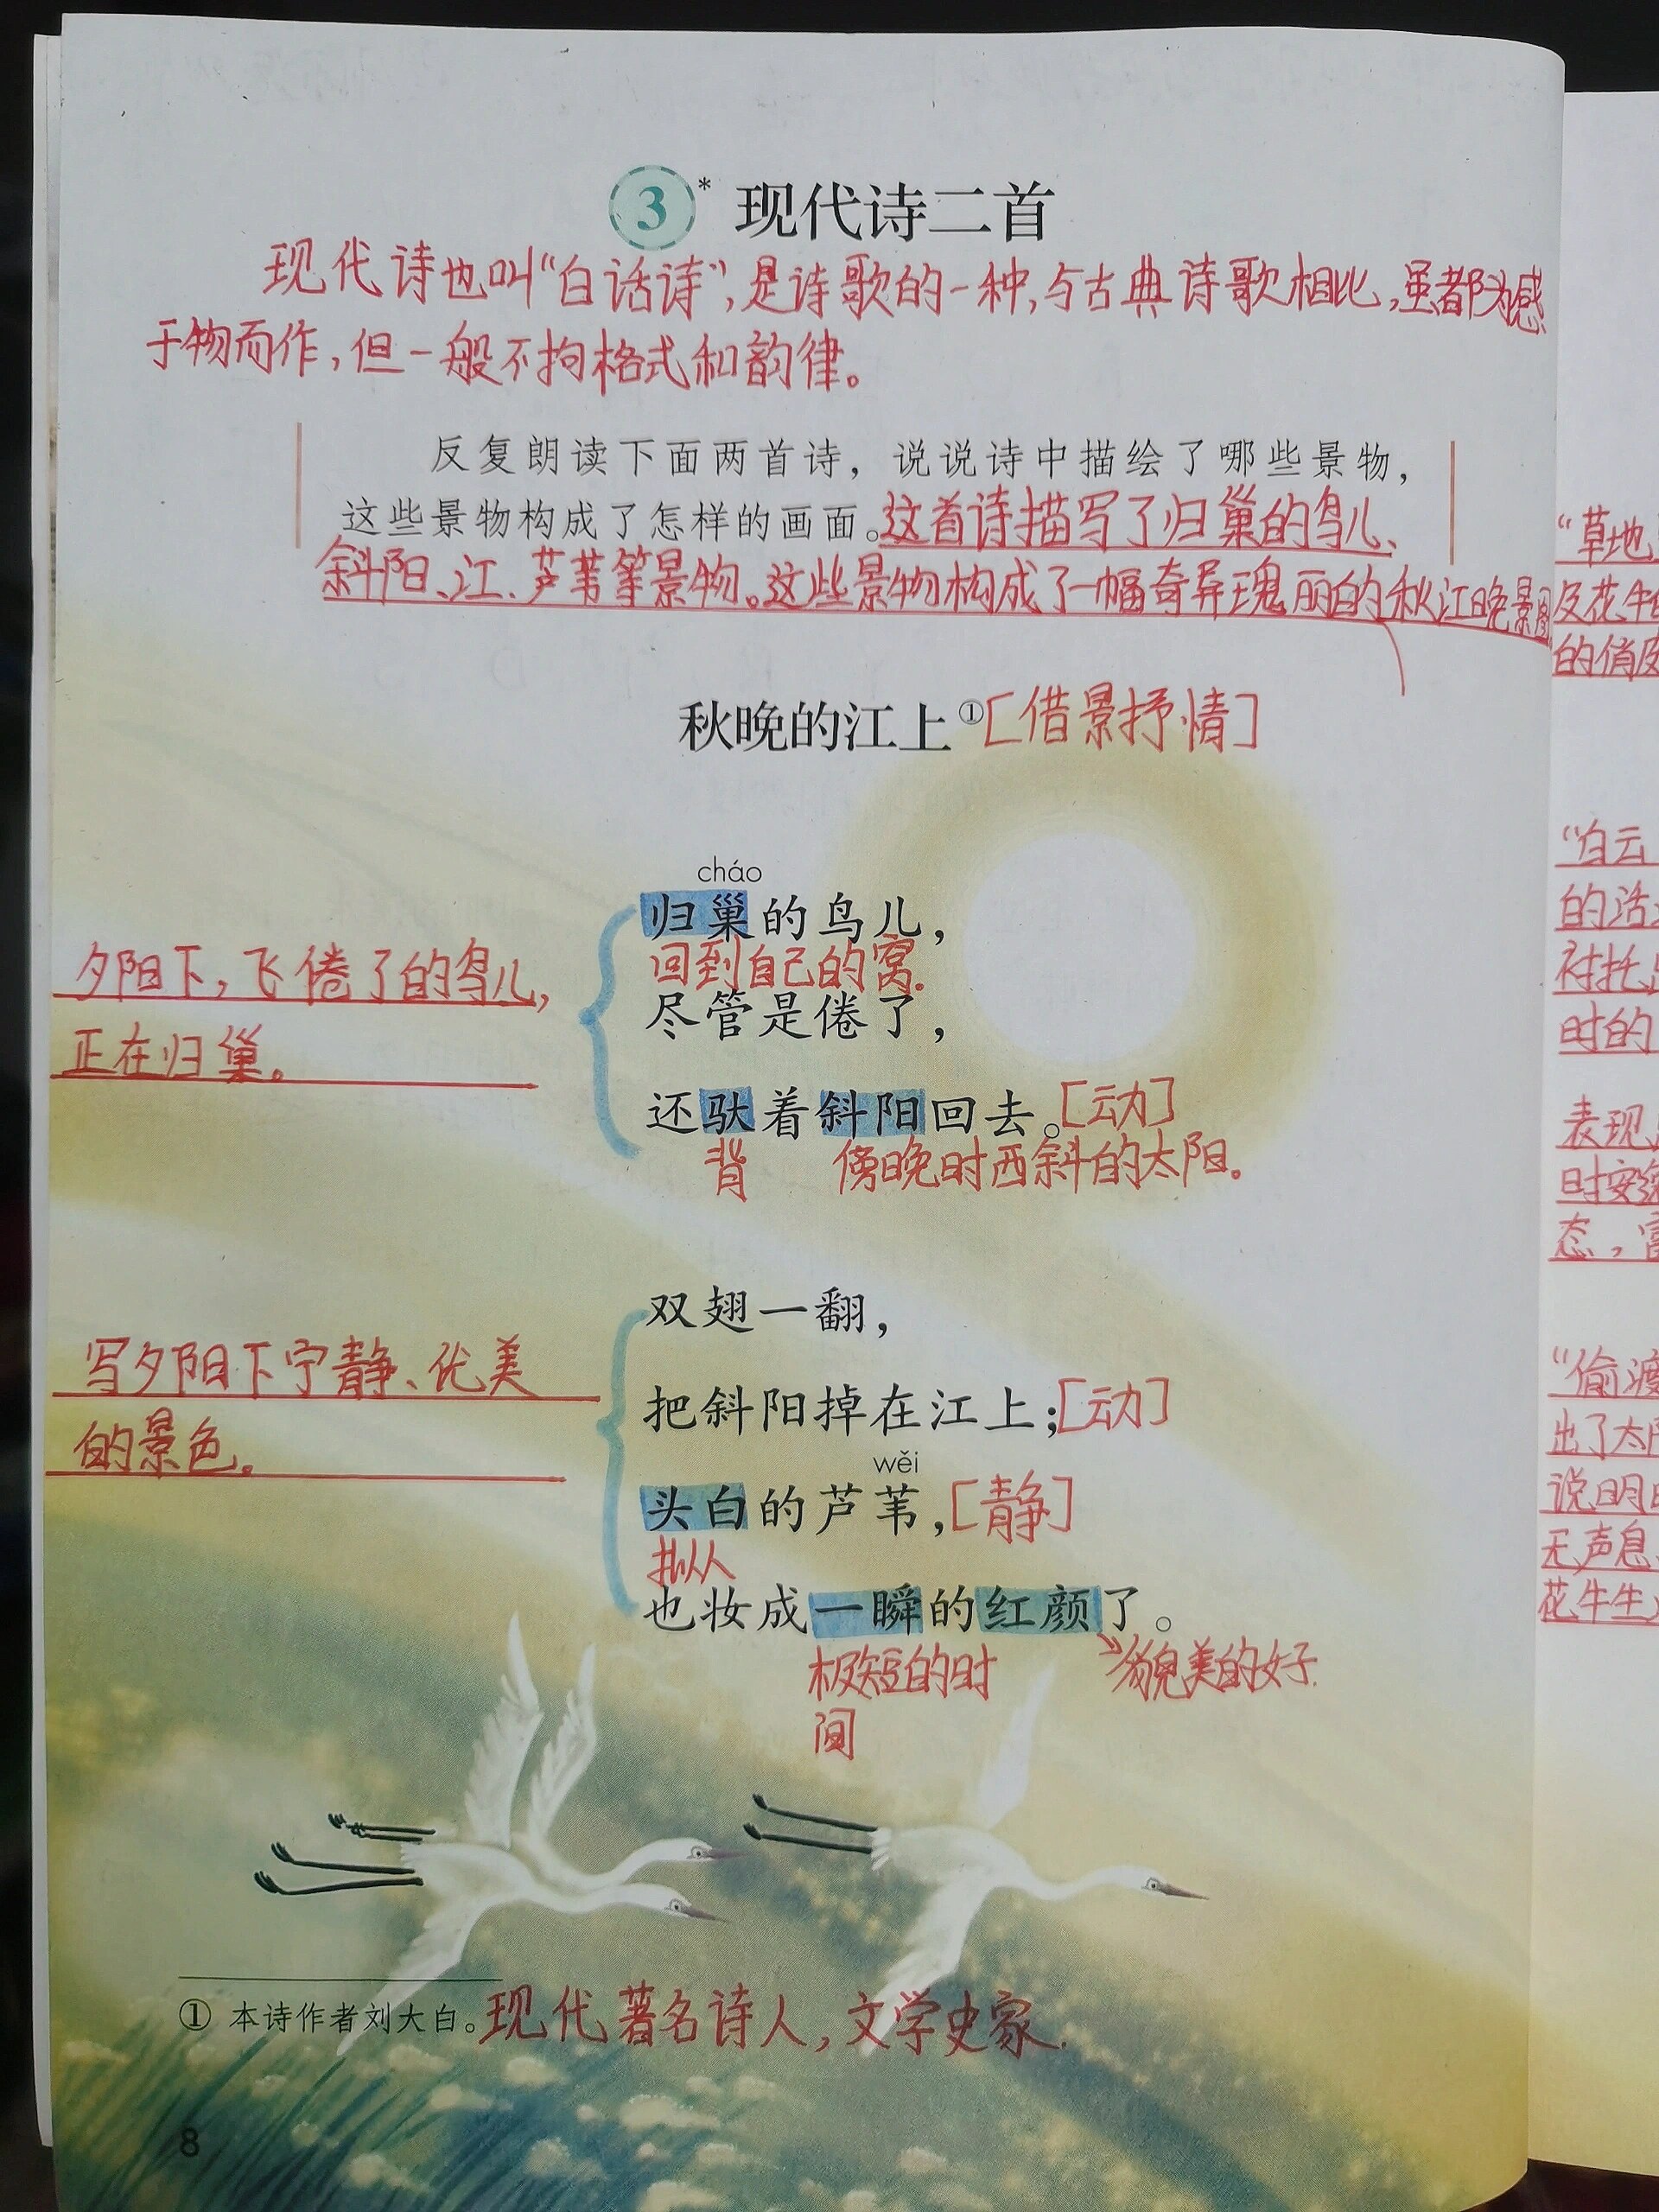 3* 现代诗二首
现代诗也叫“白话诗”,是诗歌的一种,与古典诗歌相比,虽都为感
于物而作,但一般不拘格式和韵律。
反复朗读下面两首诗，说说诗中描绘了哪些景物，
这些景物构成了怎样的画面。这首诗描写了归巢的鸟儿、
斜阳、江、芦苇等景物。这些景物构成了一幅奇异瑰丽的秋江晚景图
秋晚的江上①[借景抒情]
cháo
归巢的鸟儿，
回到自己的窝.
尽管是倦了，
还驮着斜阳回去。[动]
背 傍晚时西斜的太阳。
夕阳下,飞倦了的鸟儿,
正在归巢。
双翅一翻，
把斜阳掉在江上；[动]
wěi
头白的芦苇，[静]
拟人
也妆成一瞬的红颜了。
极短的时
间
貌美的女子.
写夕阳下宁静、优美
的景色。
① 本诗作者刘大白。现代著名诗人,文学史家.
8
“草地
及花牛
的俏皮
“白云
的活
衬托
时的
表现
时安
态,富
“偷渡
出了太阳
说明
无声息
花牛生